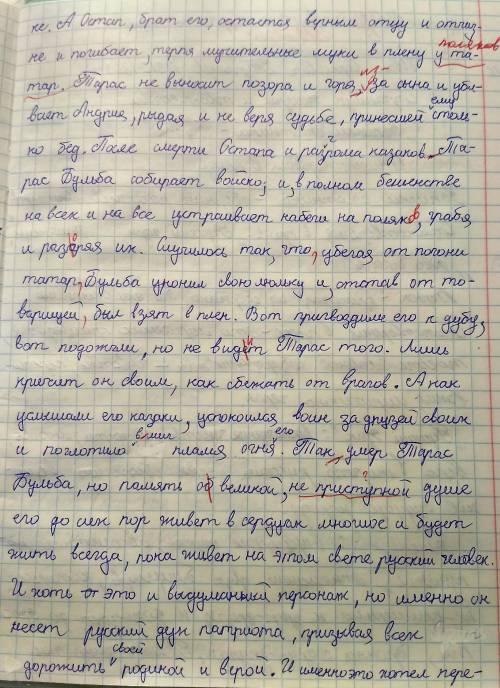 ке. А Остап, брат его, остается верным отцу и отчиз-
не и погибает, терпя мучительные муки в плену у та- поляков
тар. Тарас не выносит позора и горя, из-за сына и уби-
вает Андрия, рыдая и не веря судьбе, принесшей ему столь-
ко бед. После смерти Остапа и разгрома казаков Та-
рас Бульба собирает войско, и, в полном бешенстве
на всех и на все устраивает набеги на поляков, грабя
и разоряя их. Случилось так, что, убегая от погони
татар, Бульба уронил свою люльку и, отстав от то-
варищей, был взят в плен. Вот пригвоздили его к дубу,
вот подожгли, но не видит Тарас того. Лишь
кричит он своим, как сбежать от врагов. А как
услышали его казаки, успокоился воин за друзей своих
и поглотило его пламя огня. Так умер Тарас
Бульба, но память о великой, не приступной душе
его до сих пор живет в сердцах многих и будет
жить всегда, пока живет на этом свете русский человек.
И хоть это и выдуманный персонаж, но именно он
несет русский дух патриота, призывая всех
дорожить своей родиной и верой. И именно это хотел пере-